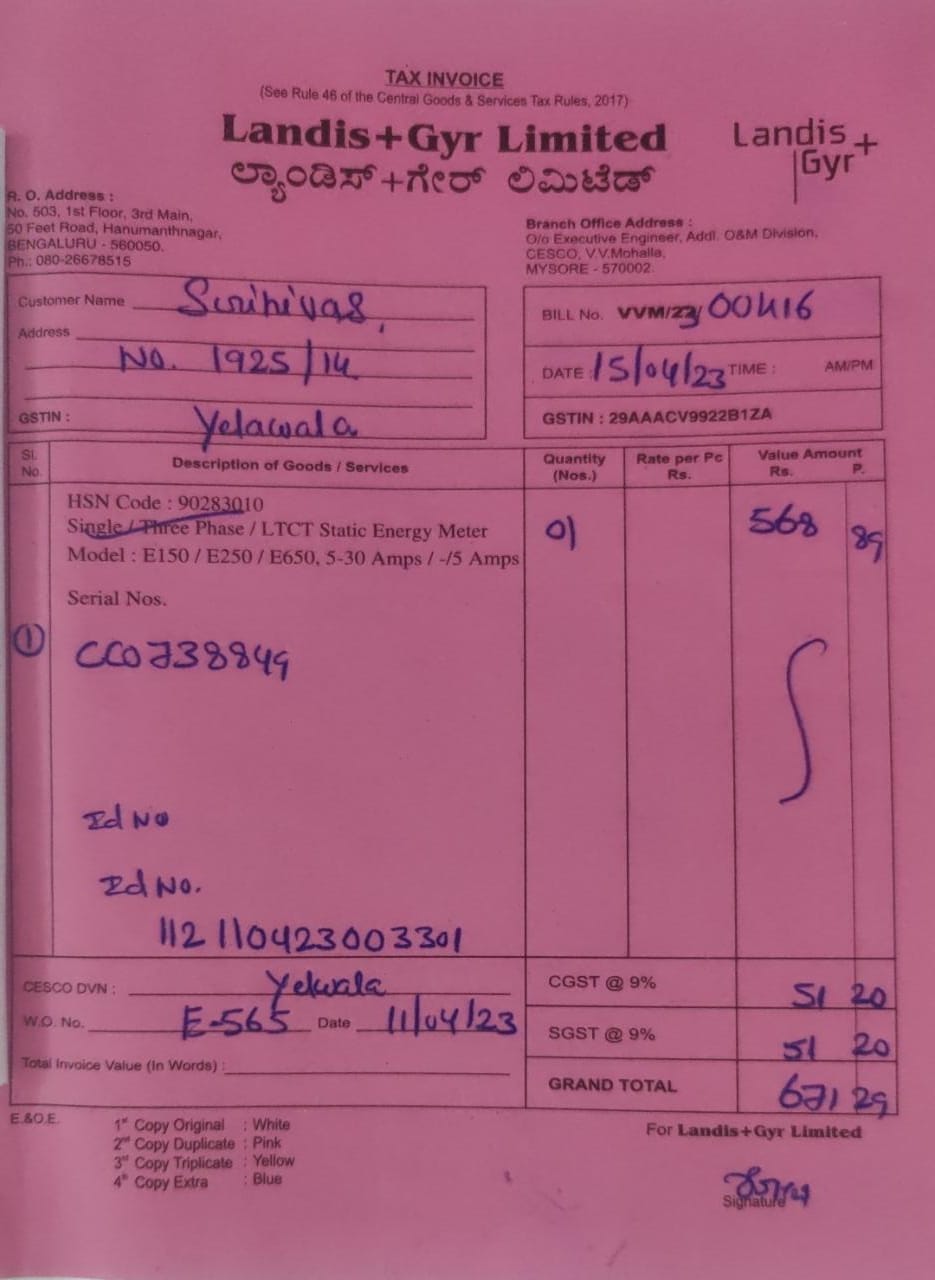 TAX INVOICE
(See Rule 46 of the Central Goods & Services Tax Rules, 2017)
Landis+Gyr Limited
ಲ್ಯಾಂಡಿಸ್+ಗೇರ್ ಲಿಮಿಟೆಡ್
Landis+
Gyr
R. O. Address :
No. 503, 1st Floor, 3rd Main,
50 Feet Road, Hanumanthnagar,
BENGALURU - 560050.
Ph.: 080-26678515
Branch Office Address :
O/o Executive Engineer, Addl. O&M Division,
CESCO, V.V.Mohalla,
MYSORE - 570002.
Customer Name Srinivas,
Address
No. 1925/14
GSTIN : Yelawala
BILL No. VVM/23/ 00416
DATE : 15/04/23 TIME : AM/PM
GSTIN : 29AAACV9922B1ZA
Sl. No. Description of Goods / Services Quantity (Nos.) Rate per Pc Rs. Value Amount Rs. P.
HSN Code : 90283010
Single / Three Phase / LTCT Static Energy Meter 01 568 89
Model : E150 / E250 / E650, 5-30 Amps / -/5 Amps
Serial Nos.
① CC0738849
Id No
Id No.
112110423003301
CESCO DVN : Yelwala
W.O. No. E-565 Date 11/04/23
Total Invoice Value (In Words) :
CGST @ 9% 51 20
SGST @ 9% 51 20
GRAND TOTAL 671 29
E.&O.E.
1st Copy Original : White
2nd Copy Duplicate : Pink
3rd Copy Triplicate : Yellow
4th Copy Extra : Blue
For Landis+Gyr Limited
Signature